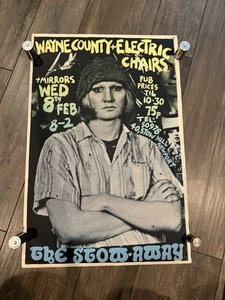 WAYNE COUNTY + ELECTRIC
CHAIRS
+ MIRRORS
WED
8TH
FEB
8-2
PUB
PRICES
TIL
10·30
75P
TEL:
50978
40 STOW HILL
NEWPORT
THE STOW·AWAY